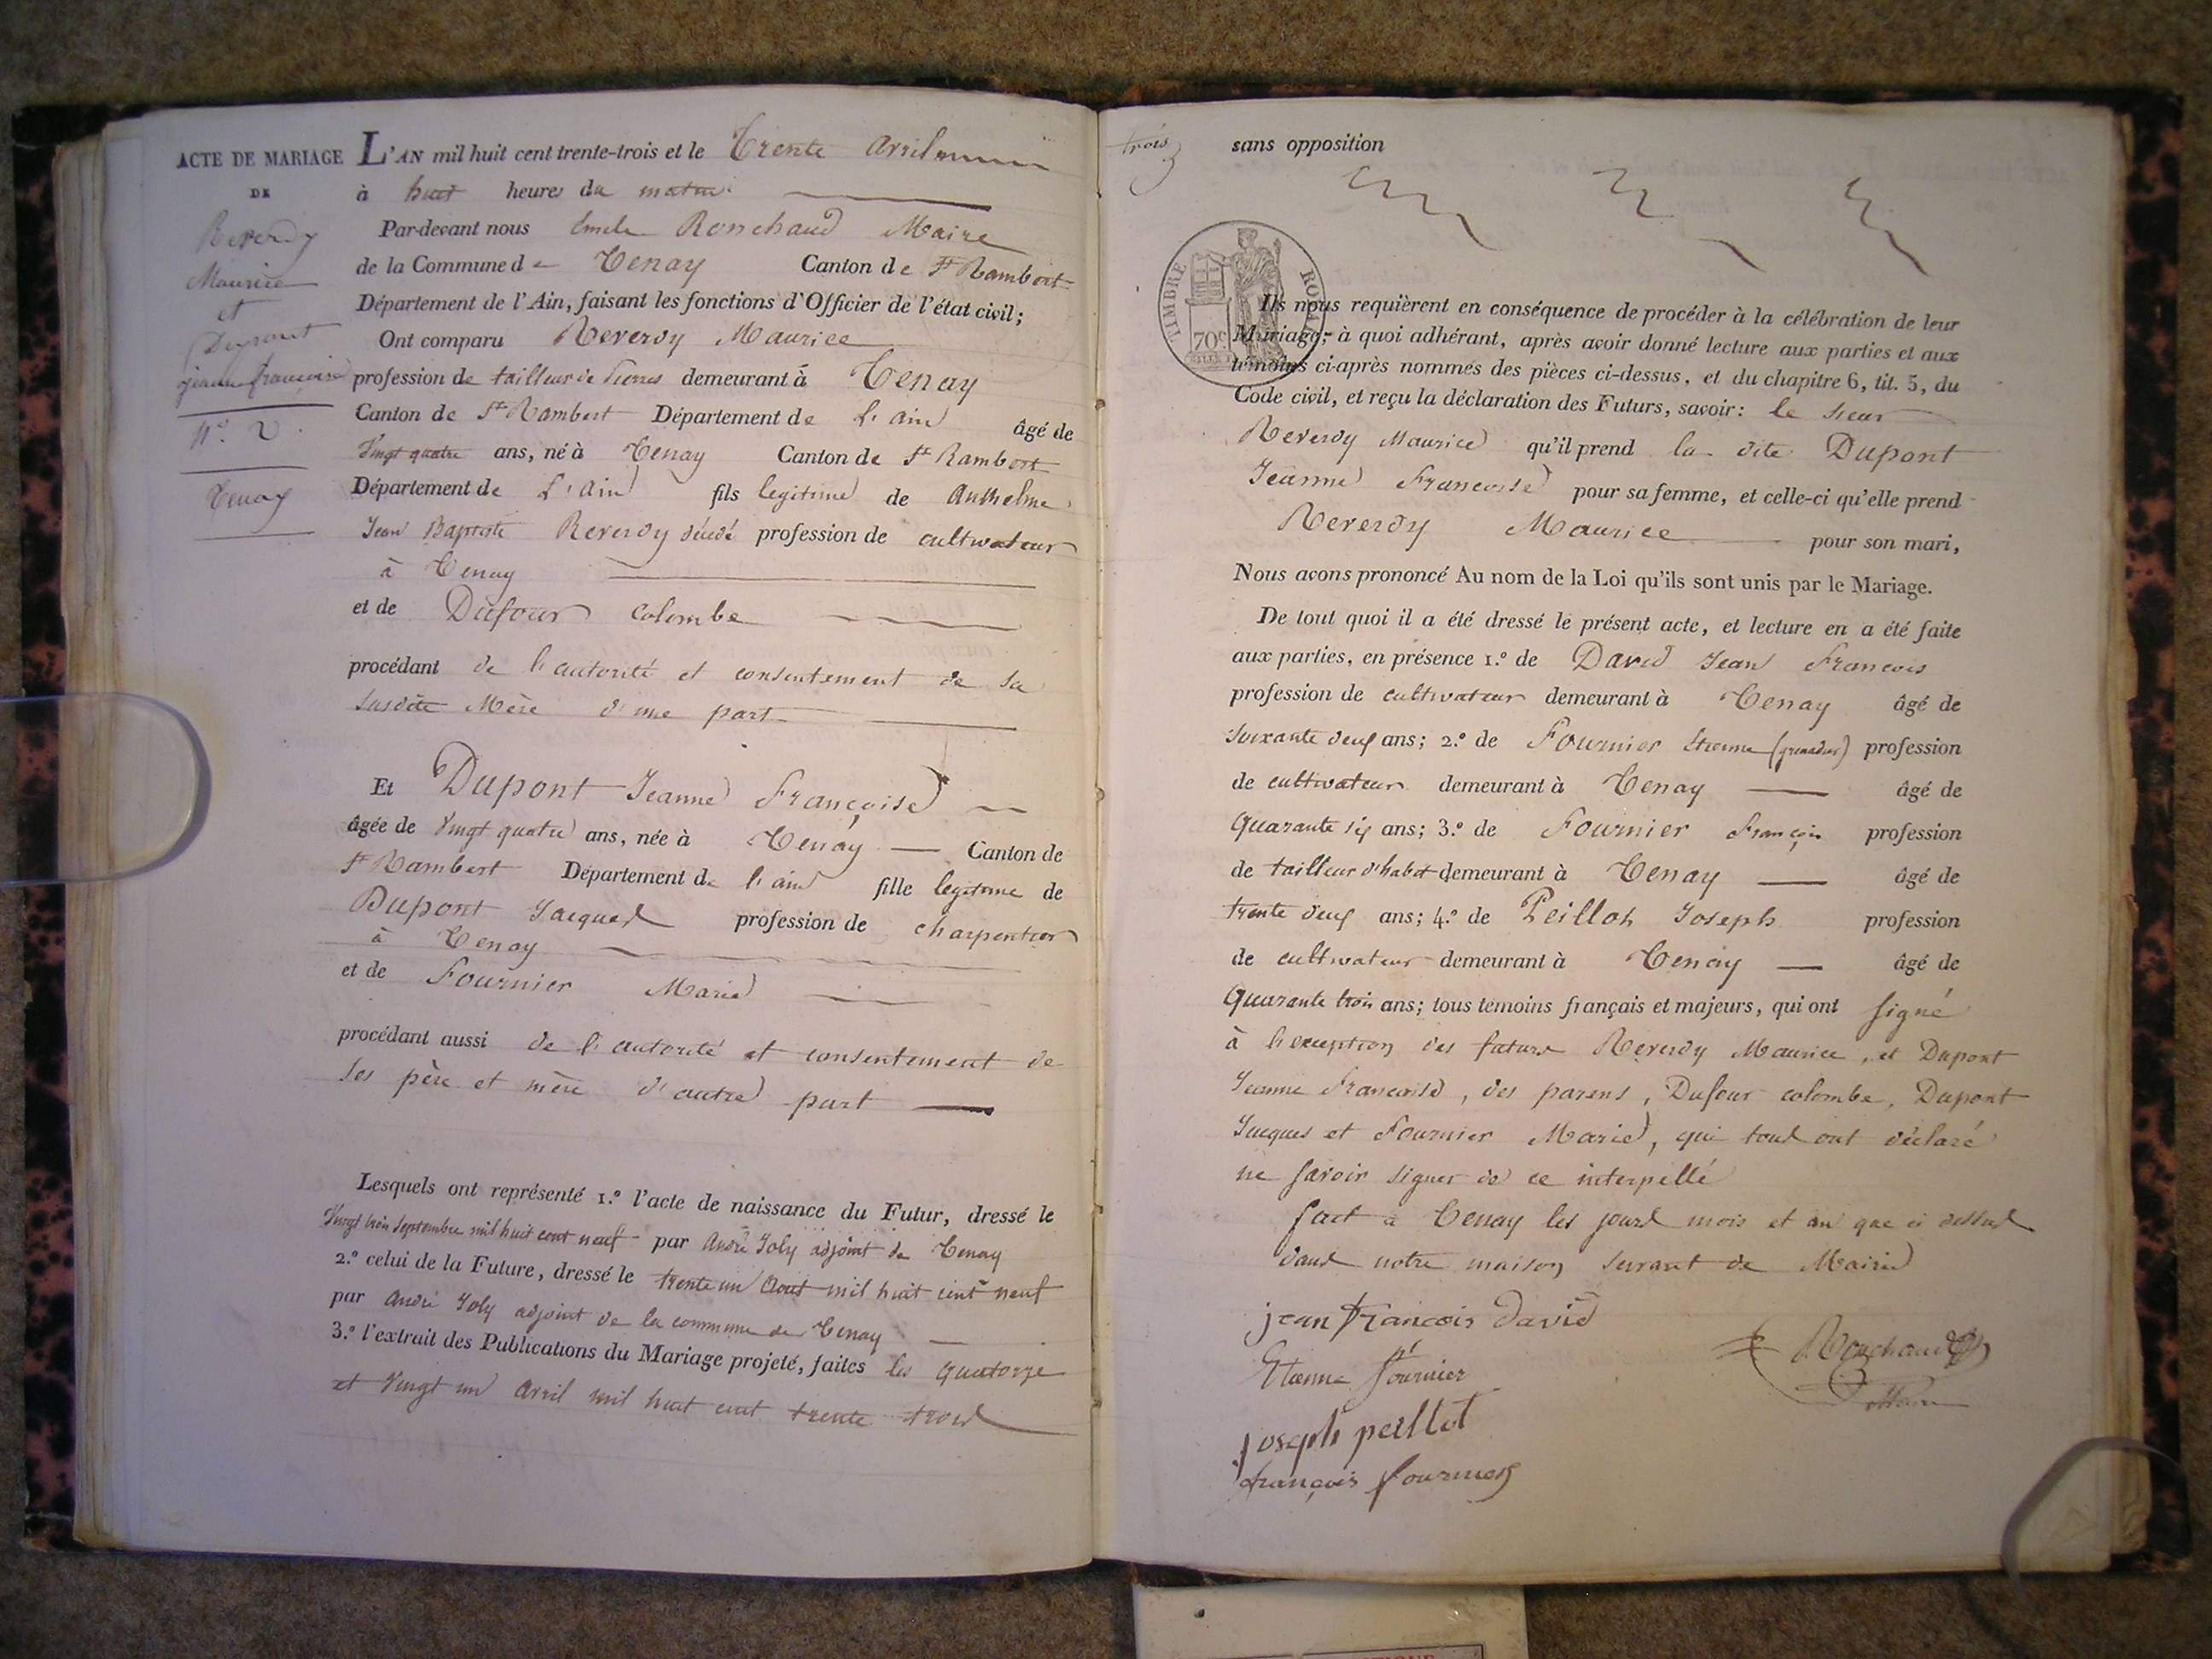 ACTE DE MARIAGE
DE
Reverdy
Maurice
et
Dupont
jeanne françoise
N.º 2.
Tenay
L'AN mil huit cent trente-trois et le Trente Avril
à huit heures du matin
Par-devant nous Emile Ronchaud Maire
de la Commune de Tenay Canton de St Rambert
Département de l'Ain, faisant les fonctions d'Officier de l'état civil;
Ont comparu Reverdy Maurice
profession de tailleur de Pierres demeurant à Tenay
Canton de St Rambert Département de L'ain âgé de
Vingt quatre ans, né à Tenay Canton de St Rambert
Département de L'Ain fils legitime de Anthelme
Jean Baptiste Reverdy décédé profession de cultivateur
à Tenay
et de Dufour Colombe
procédant de l'autorité et consentement de sa
susdite Mère d'une part
Et Dupont Jeanne Françoise
âgée de Vingt quatre ans, née à Tenay Canton de
St Rambert Département de l'ain fille legitime de
Dupont Jacques profession de charpentier
à Tenay
et de Fournier Marie
procédant aussi de l'autorité et consentement de
ses père et mère d'autre part
Lesquels ont représenté 1.º l'acte de naissance du Futur, dressé le
Vingt trois Septembre mil huit cent neuf par André Joly adjoint de Tenay
2.º celui de la Future, dressé le trente un Aout mil huit cent neuf
par André Joly adjoint de la commune de Tenay
3.º l'extrait des Publications du Mariage projeté, faites les quatorze
et Vingt un Avril mil huit cent trente trois
trois
3
sans opposition
TIMBRE ROYAL
70c
Ils nous requièrent en conséquence de procéder à la célébration de leur
Mariage; à quoi adhérant, après avoir donné lecture aux parties et aux
témoins ci-après nommés des pièces ci-dessus, et du chapitre 6, tit. 5, du
Code civil, et reçu la déclaration des Futurs, savoir: le sieur
Reverdy Maurice qu'il prend la dite Dupont
Jeanne Francoise pour sa femme, et celle-ci qu'elle prend
Reverdy Maurice pour son mari,
Nous avons prononcé Au nom de la Loi qu'ils sont unis par le Mariage.
De tout quoi il a été dressé le présent acte, et lecture en a été faite
aux parties, en présence 1.º de David Jean Francois
profession de cultivateur demeurant à Tenay âgé de
soixante deux ans; 2.º de Fournier Etienne (grenadier) profession
de cultivateur demeurant à Tenay âgé de
Quarante six ans; 3.º de Fournier François profession
de tailleur d'habit demeurant à Tenay âgé de
trente deux ans; 4.º de Peillot Joseph profession
de cultivateur demeurant à Tenay âgé de
Quarante trois ans; tous témoins français et majeurs, qui ont signé
à l'exception des futurs Reverdy Maurice, et Dupont
Jeanne Francoise, des parens, Dufour colombe, Dupont
Jacques et Fournier Marie, qui tous ont déclaré
ne savoir signer de ce interpellé
fait à Tenay les jours mois et an que ci dessus
dans notre maison servant de Mairie
jean francois david
Etienne fournier
joseph peillot
françois fournier
Ronchaud